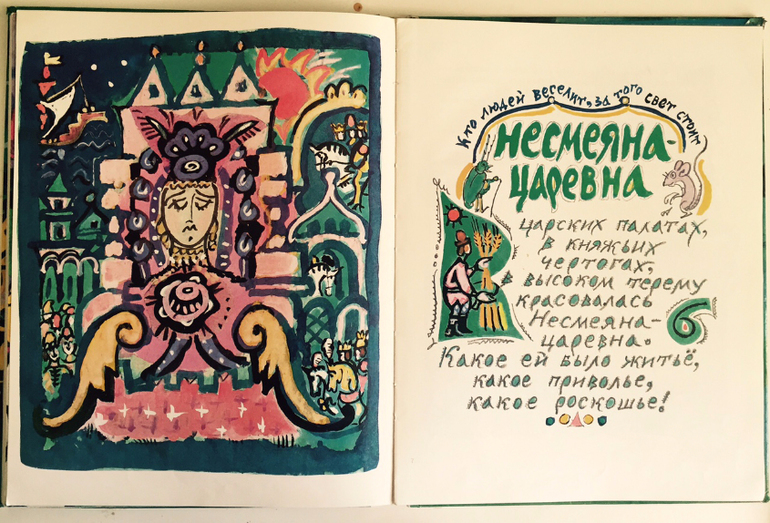 Кто людей веселит, за того свет стоит
НЕСМЕЯНА-
ЦАРЕВНА
В царских палатах,
в княжьих
чертогах,
в высоком терему
красовалась
Несмеяна-
царевна.
Какое ей было житьё,
какое приволье,
какое роскошье!
6